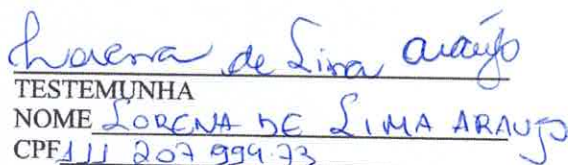 Lorena de Lima Araújo
TESTEMUNHA
NOME LORENA DE LIMA ARAUJO
CPF 111 207 999.73